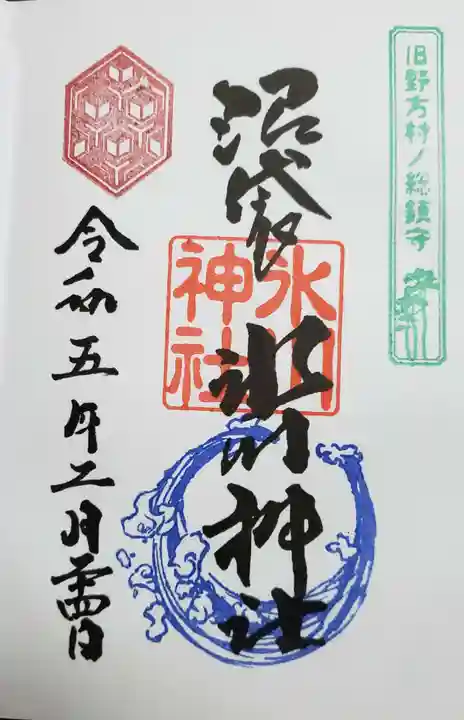 旧野方村ノ総鎮守
沼袋 氷川神社
氷川
神社
令和五年二月二十四日